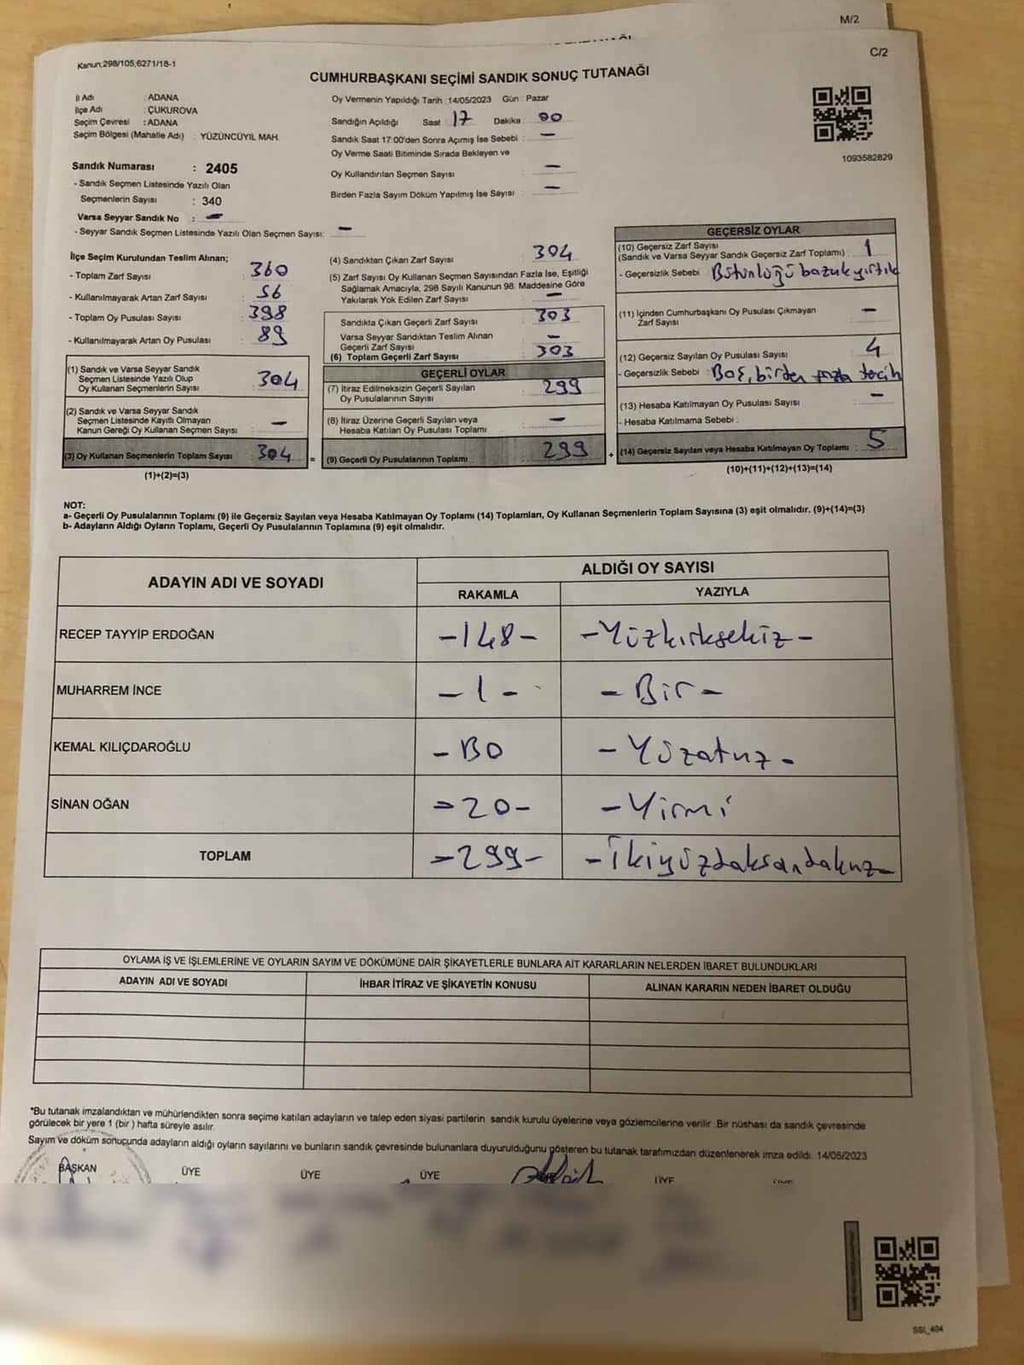 M/2
C/2
Kanun;298/105,6271/18-1
CUMHURBAŞKANI SEÇİMİ SANDIK SONUÇ TUTANAĞI
İl Adı : ADANA
İlçe Adı : ÇUKUROVA
Seçim Çevresi : ADANA
Seçim Bölgesi (Mahalle Adı) : YÜZÜNCÜYIL MAH.
Sandık Numarası : 2405
- Sandık Seçmen Listesinde Yazılı Olan
Seçmenlerin Sayısı : 340
Varsa Seyyar Sandık No : -
- Seyyar Sandık Seçmen Listesinde Yazılı Olan Seçmen Sayısı: -
Oy Vermenin Yapıldığı Tarih :14/05/2023 Gün : Pazar
Sandığın Açıldığı Saat : 17 Dakika : 00
Sandık Saat 17:00'den Sonra Açımış İse Sebebi : -
Oy Verme Saati Bitiminde Sırada Bekleyen ve
Oy Kullandırılan Seçmen Sayısı : -
Birden Fazla Sayım Döküm Yapılmış İse Sayısı : -
1093582829
İlçe Seçim Kurulundan Teslim Alınan;
- Toplam Zarf Sayısı : 360
- Kullanılmayarak Artan Zarf Sayısı : 56
- Toplam Oy Pusulası Sayısı : 398
- Kullanılmayarak Artan Oy Pusulası : 89
(1) Sandık ve Varsa Seyyar Sandık
Seçmen Listesinde Yazılı Olup
Oy Kullanan Seçmenlerin Sayısı : 304
(2) Sandık ve Varsa Seyyar Sandık
Seçmen Listesinde Kayıtlı Olmayan
Kanun Gereği Oy Kullanan Seçmen Sayısı : -
(3) Oy Kullanan Seçmenlerin Toplam Sayısı : 304
(1)+(2)=(3)
=
(4) Sandıktan Çıkan Zarf Sayısı : 304
(5) Zarf Sayısı Oy Kullanan Seçmen Sayısından Fazla İse, Eşitliği
Sağlamak Amacıyla, 298 Sayılı Kanunun 98. Maddesine Göre
Yakılarak Yok Edilen Zarf Sayısı : -
Sandıkta Çıkan Geçerli Zarf Sayısı : 303
Varsa Seyyar Sandıktan Teslim Alınan
Geçerli Zarf Sayısı : -
(6) Toplam Geçerli Zarf Sayısı : 303
GEÇERLİ OYLAR
(7) İtiraz Edilmeksizin Geçerli Sayılan
Oy Pusulalarının Sayısı : 299
(8) İtiraz Üzerine Geçerli Sayılan veya
Hesaba Katılan Oy Pusulası Toplamı : -
(9) Geçerli Oy Pusulalarının Toplamı : 299
+
GEÇERSİZ OYLAR
(10) Geçersiz Zarf Sayısı
(Sandık ve Varsa Seyyar Sandık Geçersiz Zarf Toplamı) : 1
- Geçersizlik Sebebi : Bütünlüğü bozuk yırtık
(11) İçinden Cumhurbaşkanı Oy Pusulası Çıkmayan
Zarf Sayısı : -
(12) Geçersiz Sayılan Oy Pusulası Sayısı : 4
- Geçersizlik Sebebi : Boş, birden fazla tercih
(13) Hesaba Katılmayan Oy Pusulası Sayısı : -
- Hesaba Katılmama Sebebi :
(14) Geçersiz Sayılan veya Hesaba Katılmayan Oy Toplamı : 5
(10)+(11)+(12)+(13)=(14)
NOT:
a- Geçerli Oy Pusulalarının Toplamı (9) ile Geçersiz Sayılan veya Hesaba Katılmayan Oy Toplamı (14) Toplamları, Oy Kullanan Seçmenlerin Toplam Sayısına (3) eşit olmalıdır. (9)+(14)=(3)
b- Adayların Aldığı Oyların Toplamı, Geçerli Oy Pusulalarının Toplamına (9) eşit olmalıdır.
ADAYIN ADI VE SOYADI
ALDIĞI OY SAYISI
RAKAMLA YAZIYLA
RECEP TAYYİP ERDOĞAN -148- -Yüzkırksekiz-
MUHARREM İNCE -1- -Bir-
KEMAL KILIÇDAROĞLU -130 -Yüzotuz-
SİNAN OĞAN -20- -Yirmi
TOPLAM -299- -İkiyüzdoksandokuz-
OYLAMA İŞ VE İŞLEMLERİNE VE OYLARIN SAYIM VE DÖKÜMÜNE DAİR ŞİKAYETLERLE BUNLARA AİT KARARLARIN NELERDEN İBARET BULUNDUKLARI
ADAYIN ADI VE SOYADI İHBAR İTİRAZ VE ŞİKAYETİN KONUSU ALINAN KARARIN NEDEN İBARET OLDUĞU
*Bu tutanak imzalandıktan ve mühürlendikten sonra seçime katılan adayların ve talep eden siyasi partilerin sandık kurulu üyelerine veya gözlemcilerine verilir. Bir nüshası da sandık çevresinde
görülecek bir yere 1 (bir) hafta süreyle asılır.
Sayım ve döküm sonucunda adayların aldığı oyların sayılarını ve bunların sandık çevresinde bulunanlara duyurulduğunu gösteren bu tutanak tarafımızdan düzenlenerek imza edildi. 14/05/2023
BAŞKAN ÜYE ÜYE ÜYE ÜYE ÜYE